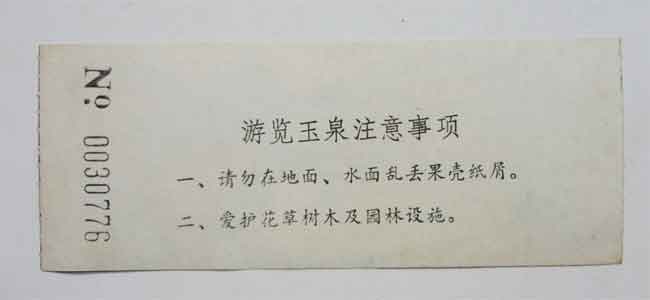 游览玉泉注意事项
一、请勿在地面、水面乱丢果壳纸屑。
二、爱护花草树木及园林设施。
№ 0030776